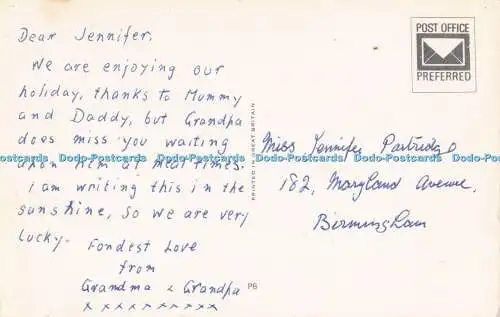 Dear Jennifer.
We are enjoying our
holiday, thanks to Mummy
and Daddy, but Grandpa
does miss you waiting
upon him at meal times.
i am writing this in the
sunshine, so we are very
lucky. Fondest Love
from
Grandma & Grandpa
x x x x x x x x x x
POST OFFICE
PREFERRED
Miss Jennifer Partridge
182, Maryland Avenue,
Birmingham
PRINTED IN GREAT BRITAIN
P6
Dodo-Postcards Dodo-Postcards Dodo-Postcards Dodo-Postcards Dodo-Postcards